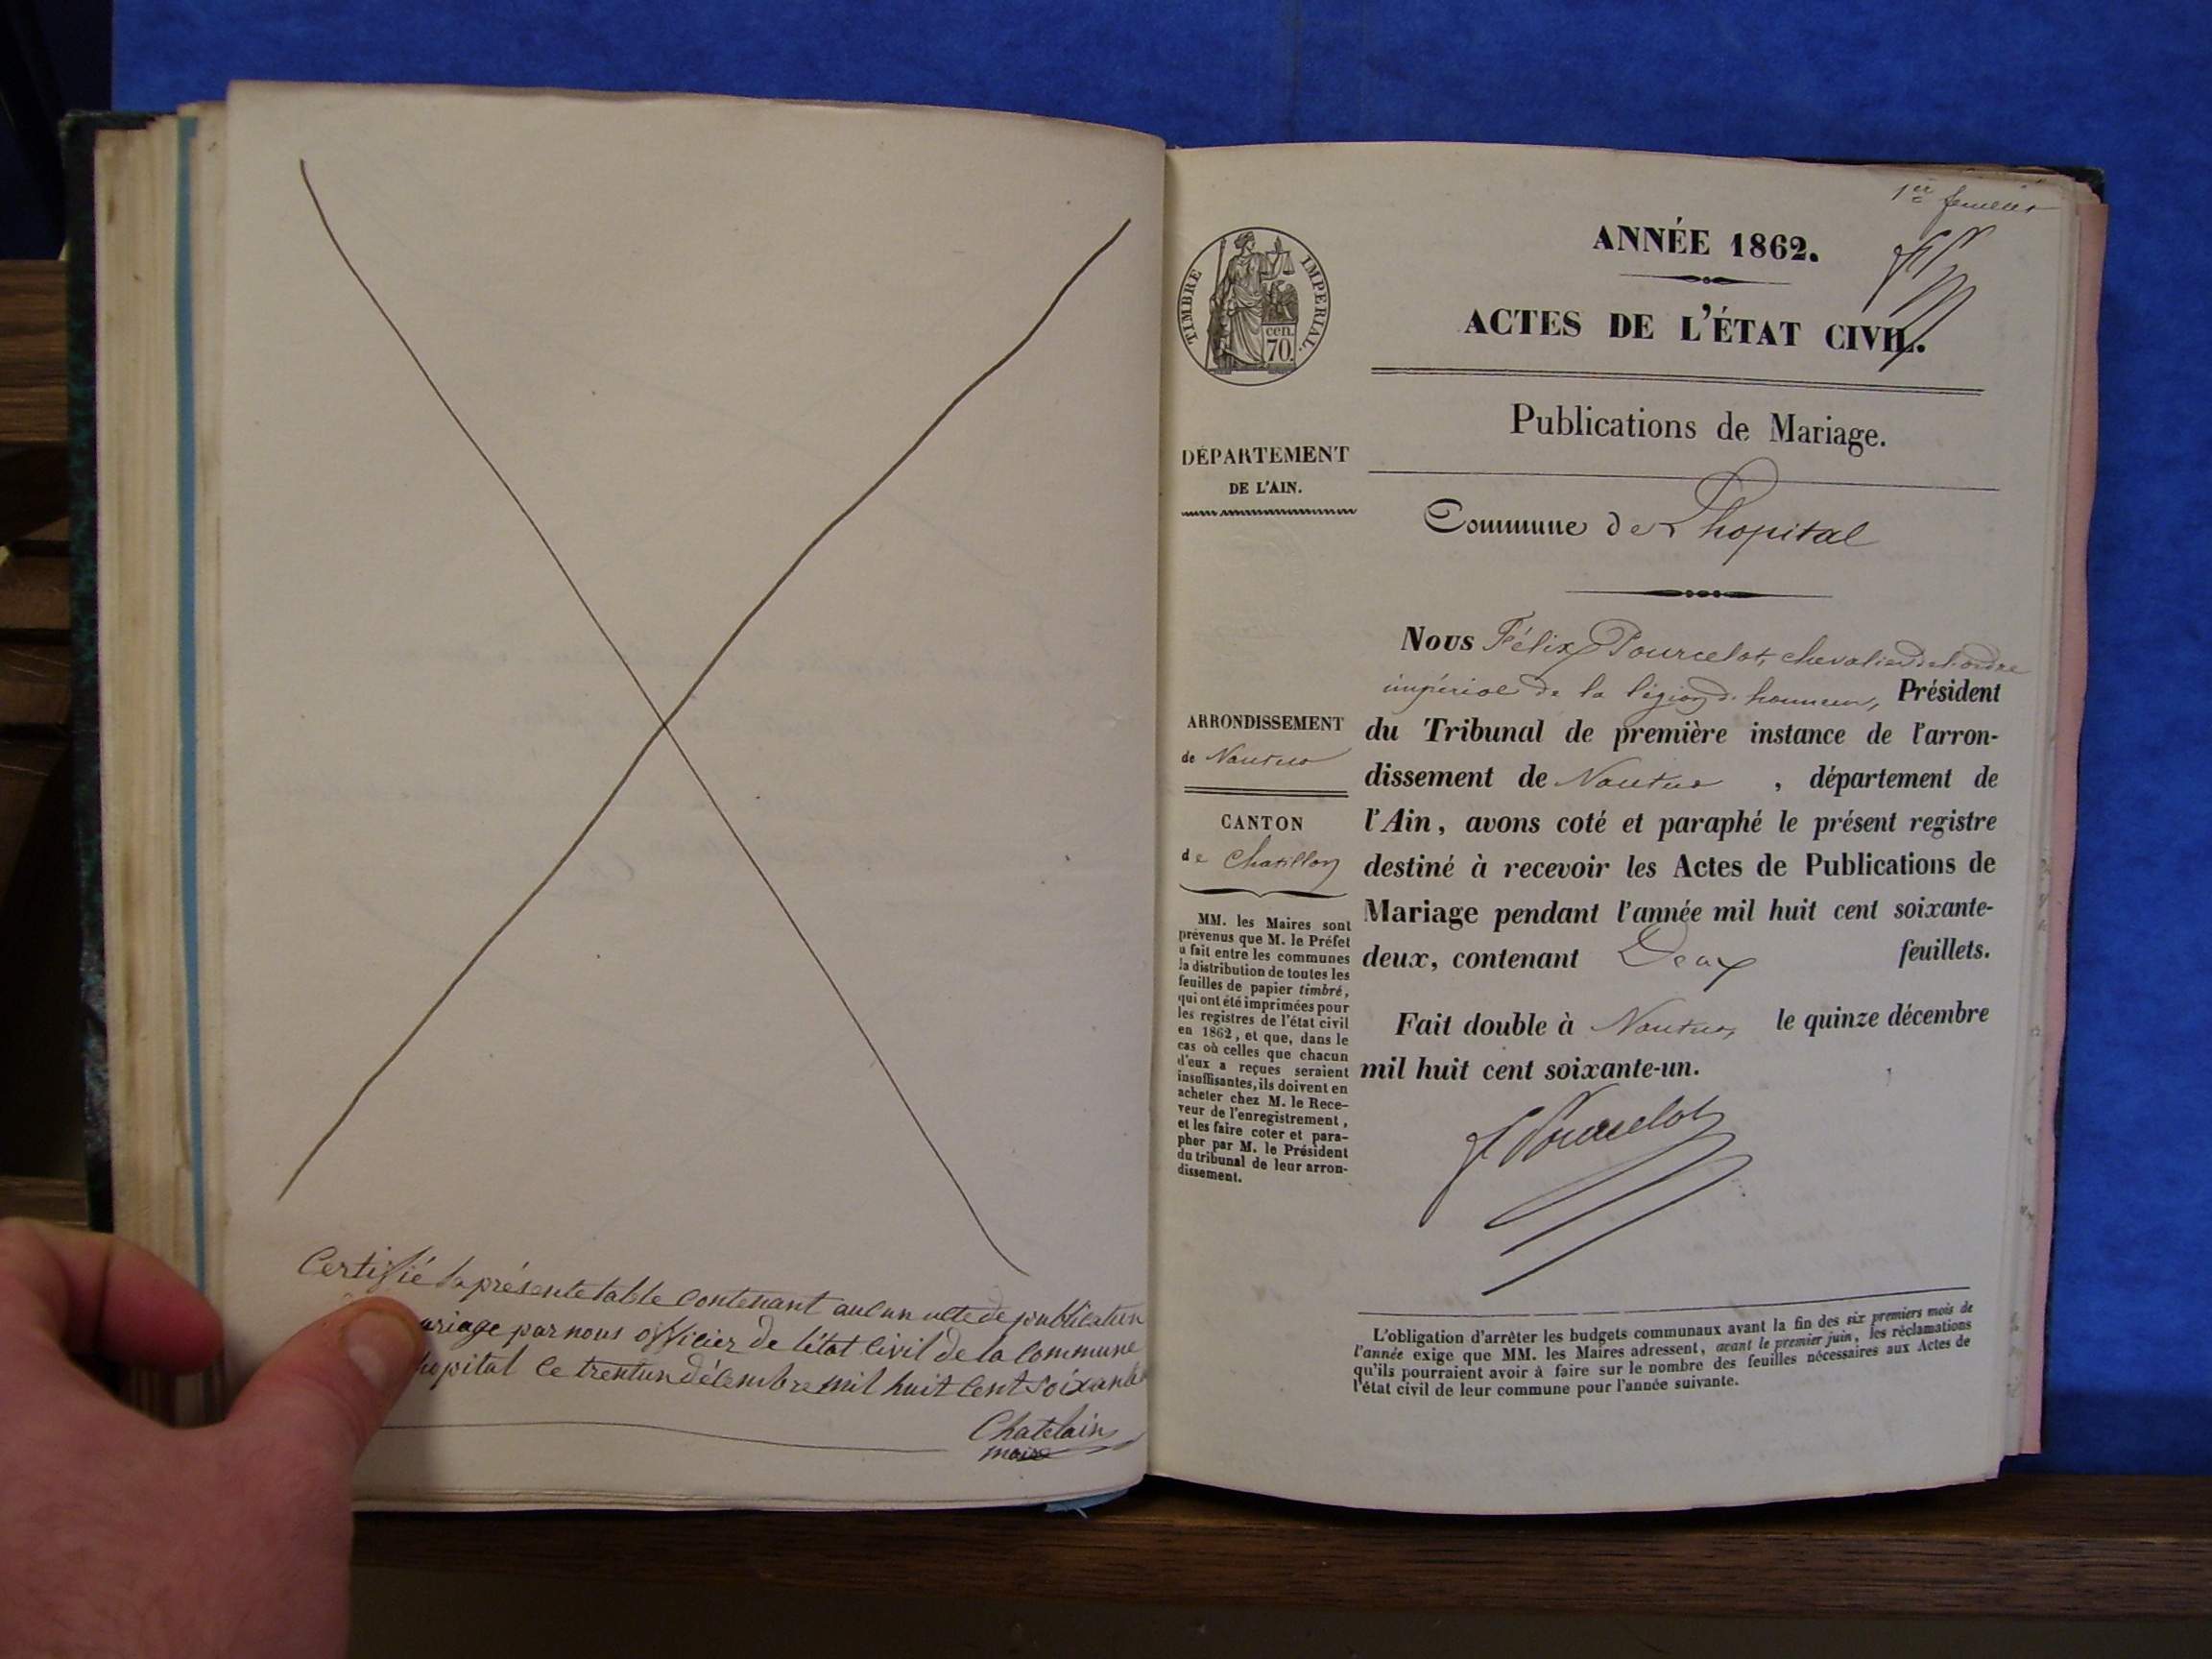 Certifié la présente table contenant aucun acte de publication
ariage par nous officier de létat Civil de la Commune
hopital Ce trentun décembre mil huit Cent Soixante
Chatelain
maire
1er feuillet
ANNÉE 1862.
ACTES DE L'ÉTAT CIVIL.
TIMBRE IMPERIAL.
cen.
70.
Publications de Mariage.
DÉPARTEMENT
DE L'AIN.
Commune de Lhopital
Nous Félix Pourcelot, chevalier de l'ordre
impérial de la légion d'honneur, Président
du Tribunal de première instance de l'arron-
dissement de Nantua, département de
l'Ain, avons coté et paraphé le présent registre
destiné à recevoir les Actes de Publications de
Mariage pendant l'année mil huit cent soixante-
deux, contenant Deux feuillets.
Fait double à Nantua, le quinze décembre
mil huit cent soixante-un.
F Pourcelot
ARRONDISSEMENT
de Nantua
CANTON
de Chatillon
MM. les Maires sont
prévenus que M. le Préfet
a fait entre les communes
la distribution de toutes les
feuilles de papier timbré,
qui ont été imprimées pour
les registres de l'état civil
en 1862, et que, dans le
cas où celles que chacun
d'eux a reçues seraient
insuffisantes, ils doivent en
acheter chez M. le Rece-
veur de l'enregistrement,
et les faire coter et para-
pher par M. le Président
du tribunal de leur arron-
dissement.
L'obligation d'arrêter les budgets communaux avant la fin des six premiers mois de
l'année exige que MM. les Maires adressent, avant le premier juin, les réclamations
qu'ils pourraient avoir à faire sur le nombre des feuilles nécessaires aux Actes de
l'état civil de leur commune pour l'année suivante.